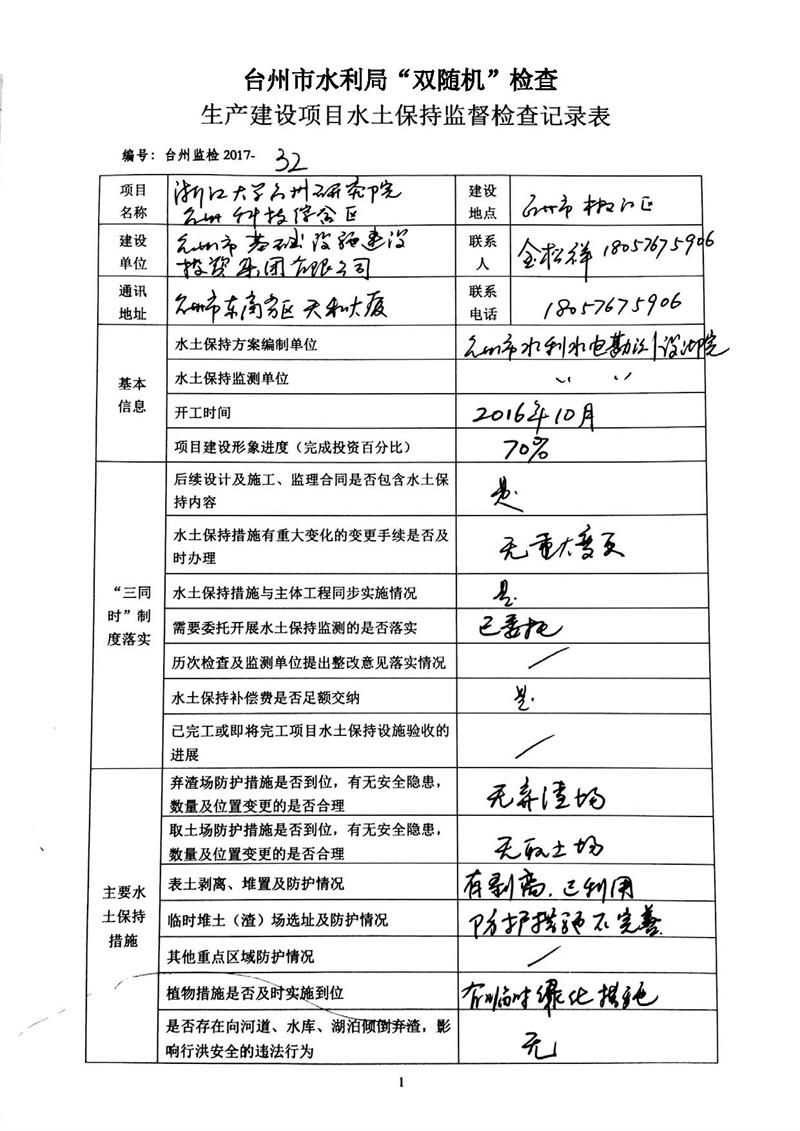 台州市水利局“双随机”检查
生产建设项目水土保持监督检查记录表
编号：台州监检2017- 32
项目
名称
浙江大学台州研究院
台州科技综合区
建设
地点
台州市椒江区
建设
单位
台州市基础设施建设
投资集团有限公司
联系
人
金松祥 18057675906
通讯
地址
台州市东商务区天和大厦
联系
电话
18057675906
基本
信息
水土保持方案编制单位
台州市水利水电勘测设计院
水土保持监测单位
〃 〃
开工时间
2016年10月
项目建设形象进度（完成投资百分比）
70%
“三同
时”制
度落实
后续设计及施工、监理合同是否包含水土保
持内容
是.
水土保持措施有重大变化的变更手续是否及
时办理
无重大变更
水土保持措施与主体工程同步实施情况
是.
需要委托开展水土保持监测的是否落实
已委托
历次检查及监测单位提出整改意见落实情况
/
水土保持补偿费是否足额交纳
是.
已完工或即将完工项目水土保持设施验收的
进展
/
主要水
土保持
措施
弃渣场防护措施是否到位，有无安全隐患，
数量及位置变更的是否合理
无弃渣场
取土场防护措施是否到位，有无安全隐患，
数量及位置变更的是否合理
无取土场
表土剥离、堆置及防护情况
有剥离.已利用
临时堆土（渣）场选址及防护情况
防护措施不完善.
其他重点区域防护情况
/
植物措施是否及时实施到位
有临时绿化措施
是否存在向河道、水库、湖泊倾倒弃渣，影
响行洪安全的违法行为
无
1